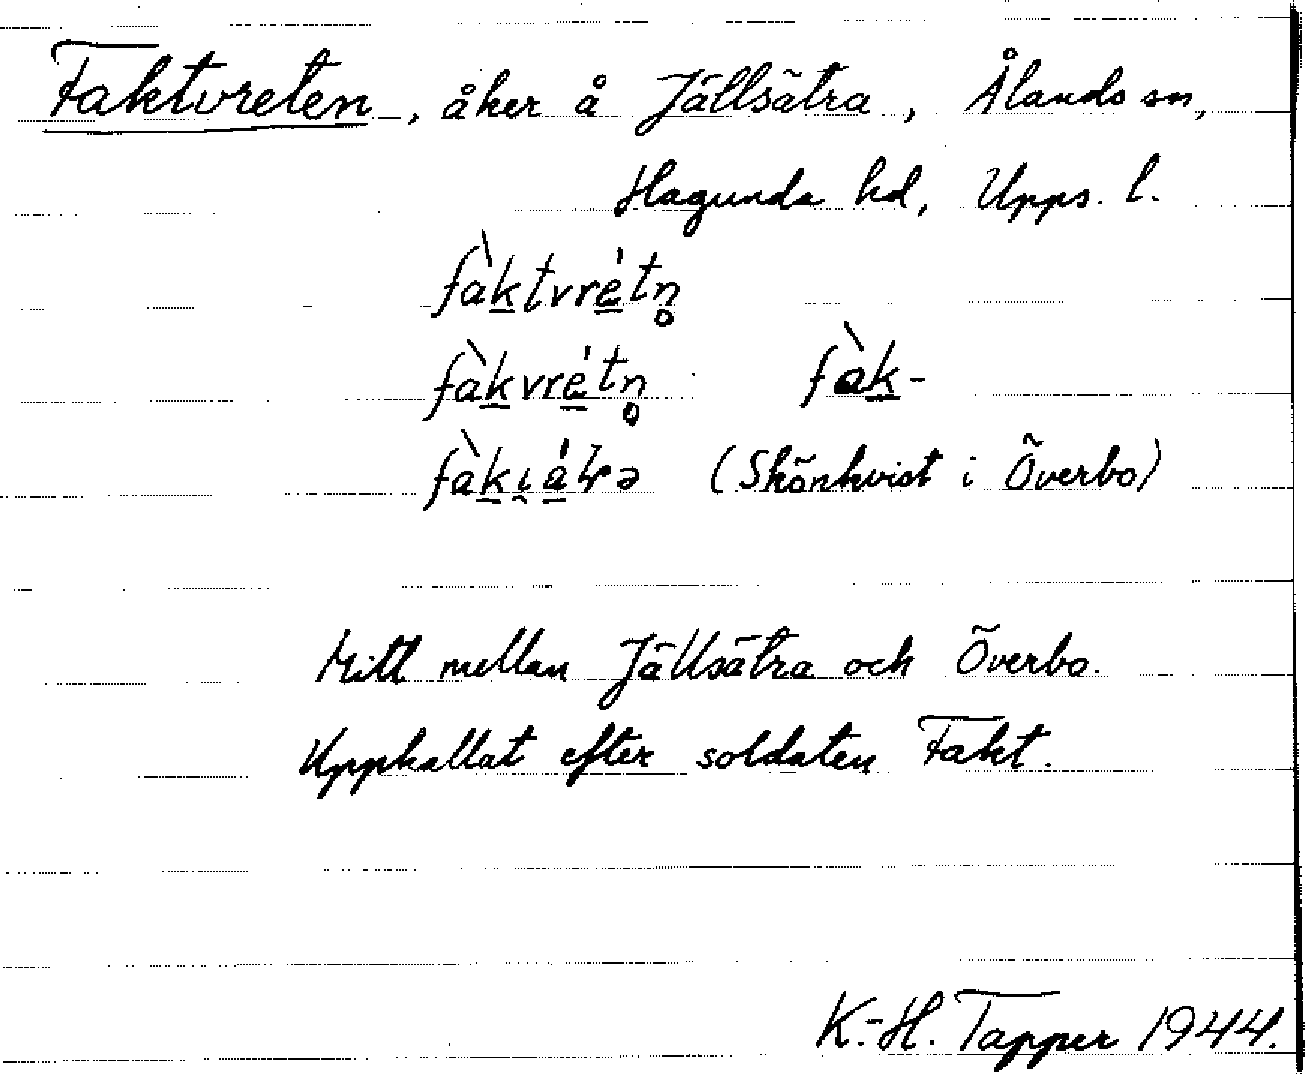 Faktvreten, åker å Jällsätra, Ålands sn,
Hagunda hd, Upps. l.
fàktvrétn̥
fàkvrétn̥ fàk-
(Skönkvist i Överbo)
Mitt mellan Jällsätra och Överbo.
Uppkallat efter soldaten Fakt.
K.-H. Tapper 1944.